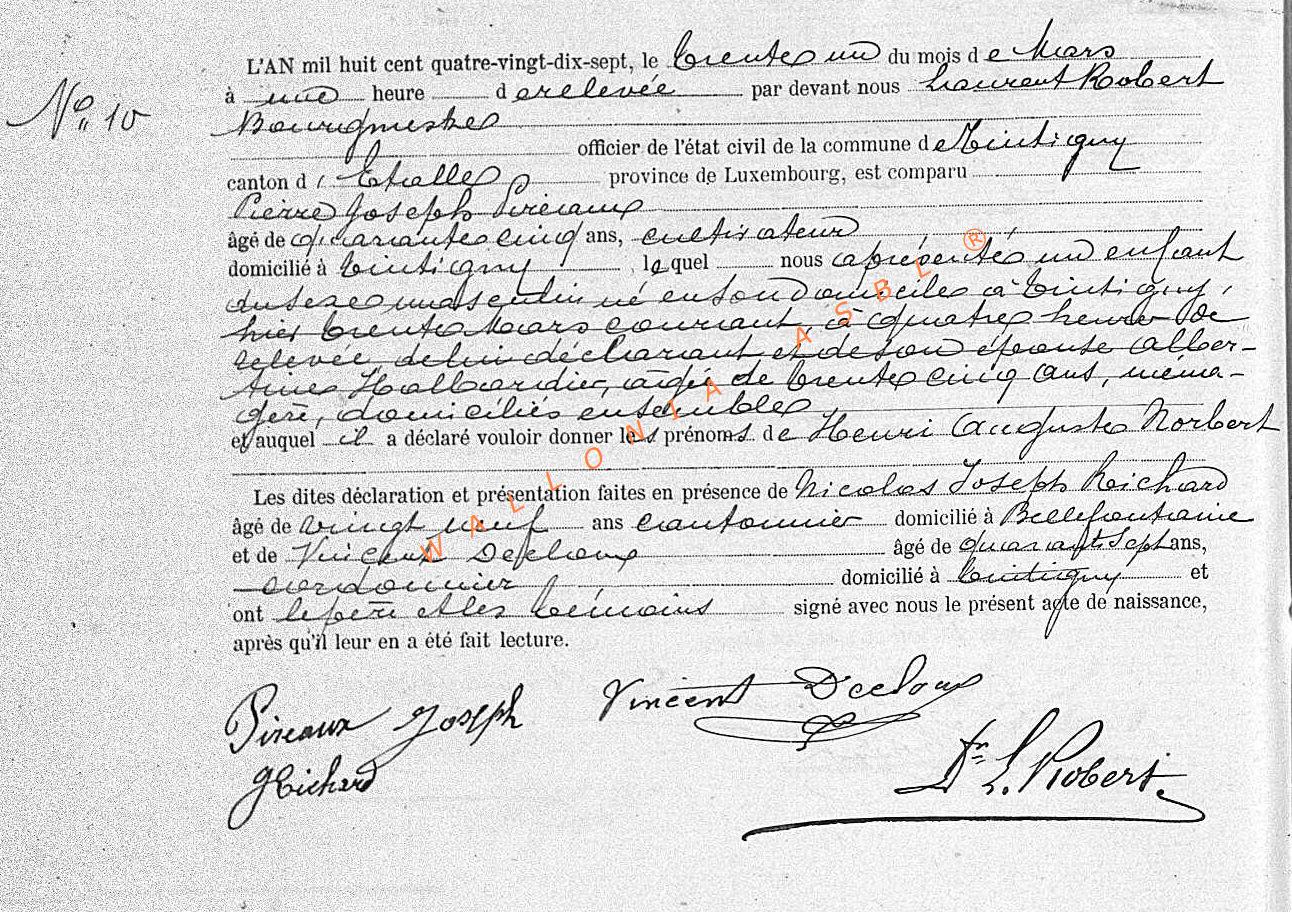 L'AN mil huit cent quatre-vingt-dix-sept, le trente un du mois de Mars
No 10
à une heure de relevée par devant nous Laurent Robert
Bourgmestre
officier de l'état civil de la commune de Tintigny
canton d'Etalle province de Luxembourg, est comparu
Pierre Joseph Pireaux
âgé de quarante cinq ans, cultivateur
domicilié à Tintigny, lequel nous a présenté un enfant
du sexe masculin né en son domicile à Tintigny,
hier trente Mars courant, à quatre heures de
relevée de lui déclarant et de son épouse Alber-
tine Hallardier, âgée de trente cinq ans, ména-
gère, domiciliés ensembles
et auquel il a déclaré vouloir donner les prénoms de Henri Auguste Norbert
Les dites déclaration et présentation faites en présence de Nicolas Joseph Richard
âgé de vingt neuf ans cantonnier domicilié à Bellefontaine
et de Vincent âgé de quarante sept ans,
cordonnier domicilié à Tintigny et
ont le père et les témoins signé avec nous le présent acte de naissance,
après qu'il leur en a été fait lecture.
Pireaux Joseph
Vincent
Richard
Dr L. Robert.
WALLONIA ASBL ®